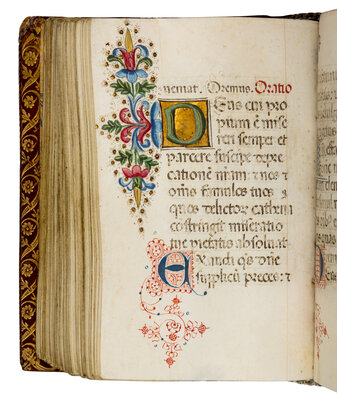 ueniat. Oremus. Oratio
Deus cui pro
prium ē mise
reri semper et
parcere suscipe depre
cationē nr̄am: ⁊ nos ⁊
om̄s famulos tuos
quos delictor cathena
constringit miseratio
tue pietatis absoluat
Exaudi q̄s dn̄e
supplicū preces: ⁊